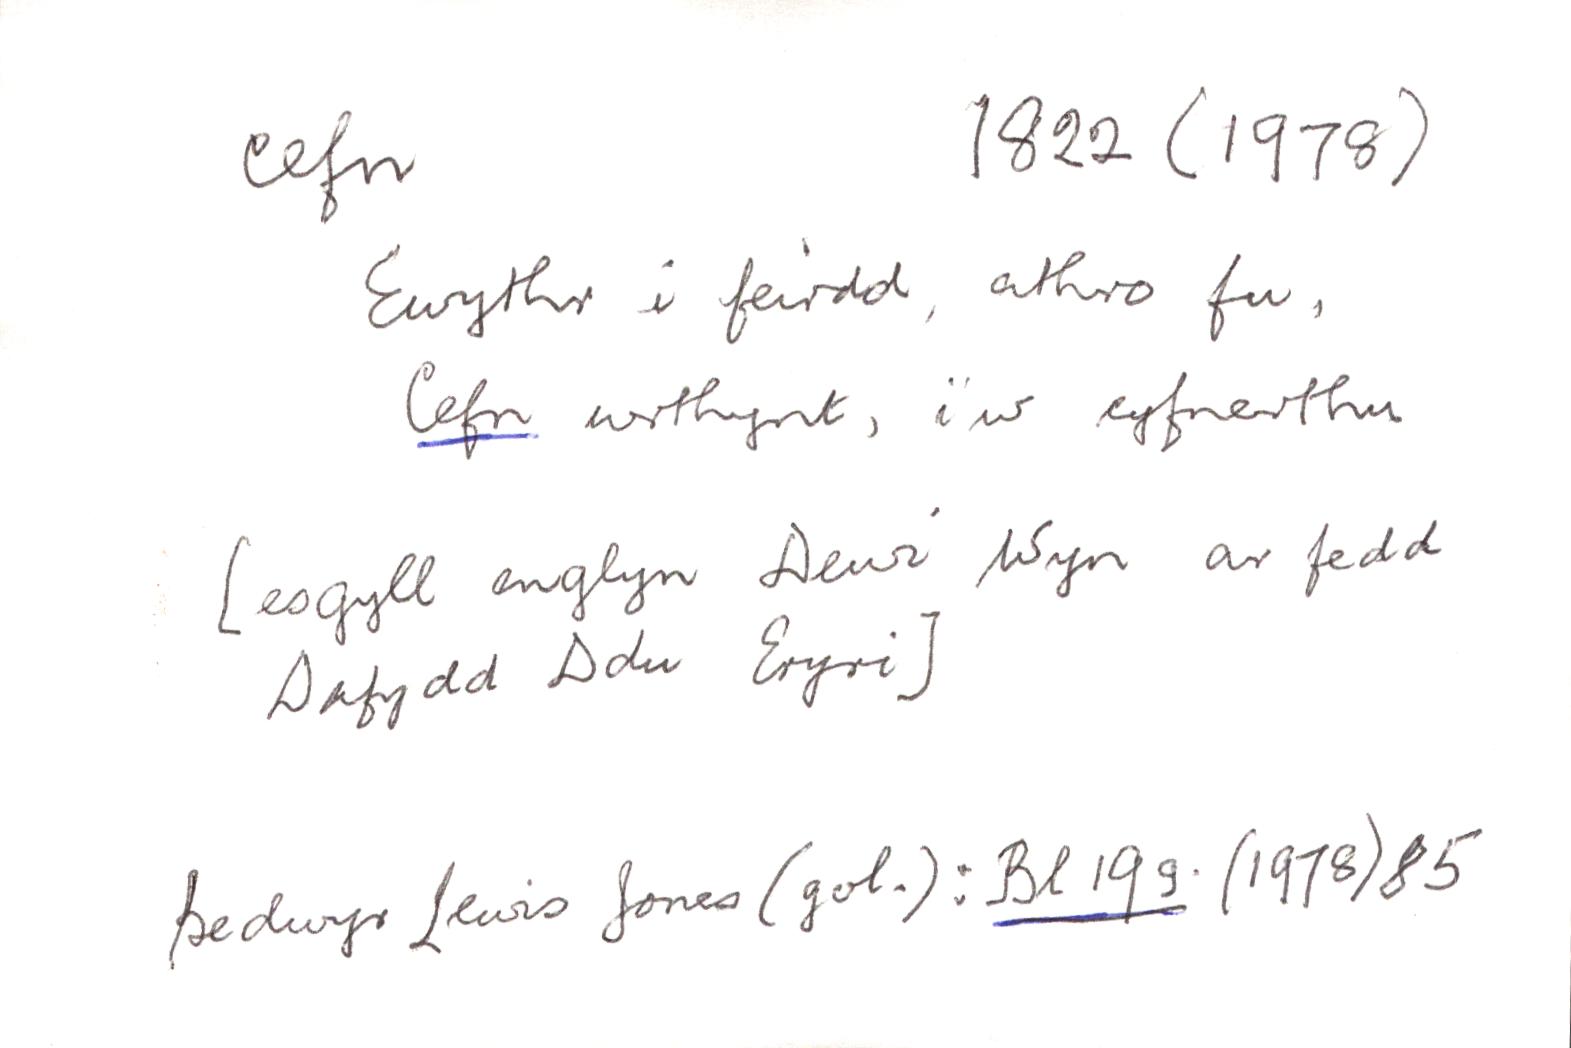 cefn 1822 (1978)
Ewythr i feirdd, athro fu,
Cefn wrthynt, i'w cyfnerthu
[esgyll englyn Dewi Wyn ar fedd
Dafydd Ddu Eryri]
Bedwyr Lewis Jones (gol.): Bl 19g. (1978) 85